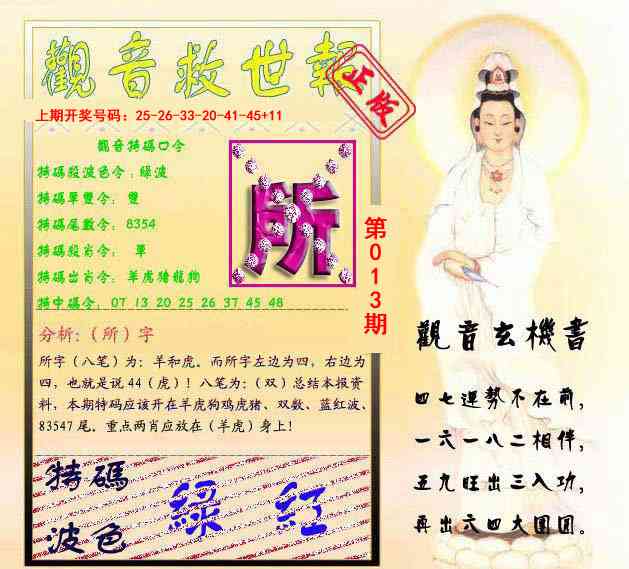 觀音救世報
正版
上期开奖号码：25-26-33-20-41-45+11
觀音特碼口令
特碼殺波色令：綠波
特碼單雙令： 雙
特碼尾數令： 8354
特碼殺肖令： 單
特碼出肖令： 羊虎猪龍狗
特中碼令： 07 13 20 25 26 37 45 48
所
第013期
分析:（所）字
所字（八笔）为：羊和虎。而所字左边为四，右边为
四，也就是说44（虎）！八笔为：（双）总结本报资
料，本期特码应该开在羊虎狗鸡虎猪、双数、蓝红波、
83547尾。重点两肖应放在（羊虎）身上！
特碼
波色
綠 紅
觀音玄機書
四七運勢不在前，
一六一八二相伴，
五九旺出三入功，
再出六四大團圓。